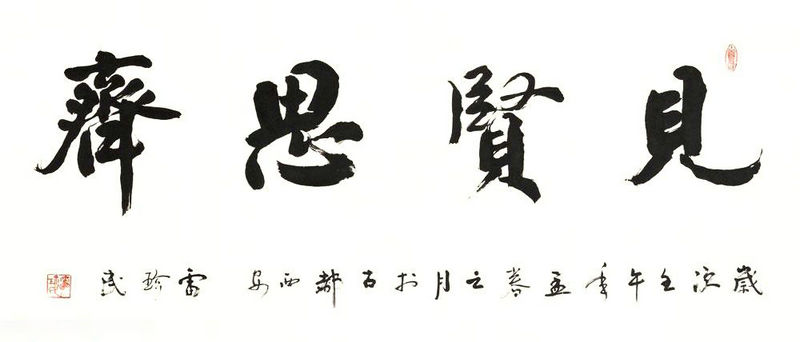 見賢思齊
歲次壬午年孟春之月於古都西安 雷珍民